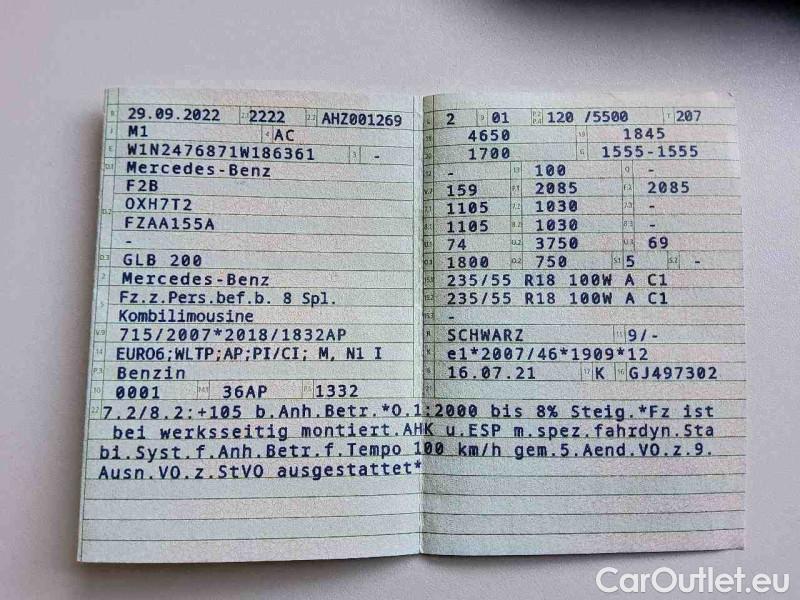 B 29.09.2022 2.1 2222 2.2 AHZ001269
J M1 4 AC
E W1N2476871W186361 3 -
D.1 Mercedes-Benz
F2B
D.2 OXH7T2
FZAA155A
-
D.3 GLB 200
2 Mercedes-Benz
5 Fz.z.Pers.bef.b. 8 Spl.
Kombilimousine
V.9 715/2007*2018/1832AP
14 EURO6;WLTP;AP;PI/CI; M, N1 I
P.3 Benzin
10 0001 14.1 36AP P.1 1332
L 2 9 01 P.2 P.4 120 /5500 T 207
18 4650 19 1845
20 1700 G 1555-1555
12 - 13 100 Q -
V.7 159 F.1 2085 F.2 2085
7.1 1105 7.2 1030 7.3 -
8.1 1105 8.2 1030 8.3 -
U.1 74 U.2 3750 U.3 69
O.1 1800 O.2 750 S.1 5 S.2 -
15.1 235/55 R18 100W A C1
15.2 235/55 R18 100W A C1
15.3 -
R SCHWARZ 11 9/-
K e1*2007/46*1909*12
6 16.07.21 17 K 16 GJ497302
21
22 7.2/8.2:+105 b.Anh.Betr.*O.1:2000 bis 8% Steig.*Fz ist
bei werksseitig montiert.AHK u.ESP m.spez.fahrdyn.Sta
bi.Syst.f.Anh.Betr.f.Tempo 100 km/h gem.5.Aend.VO.z.9.
Ausn.VO.z.StVO ausgestattet*
CarOutlet.eu